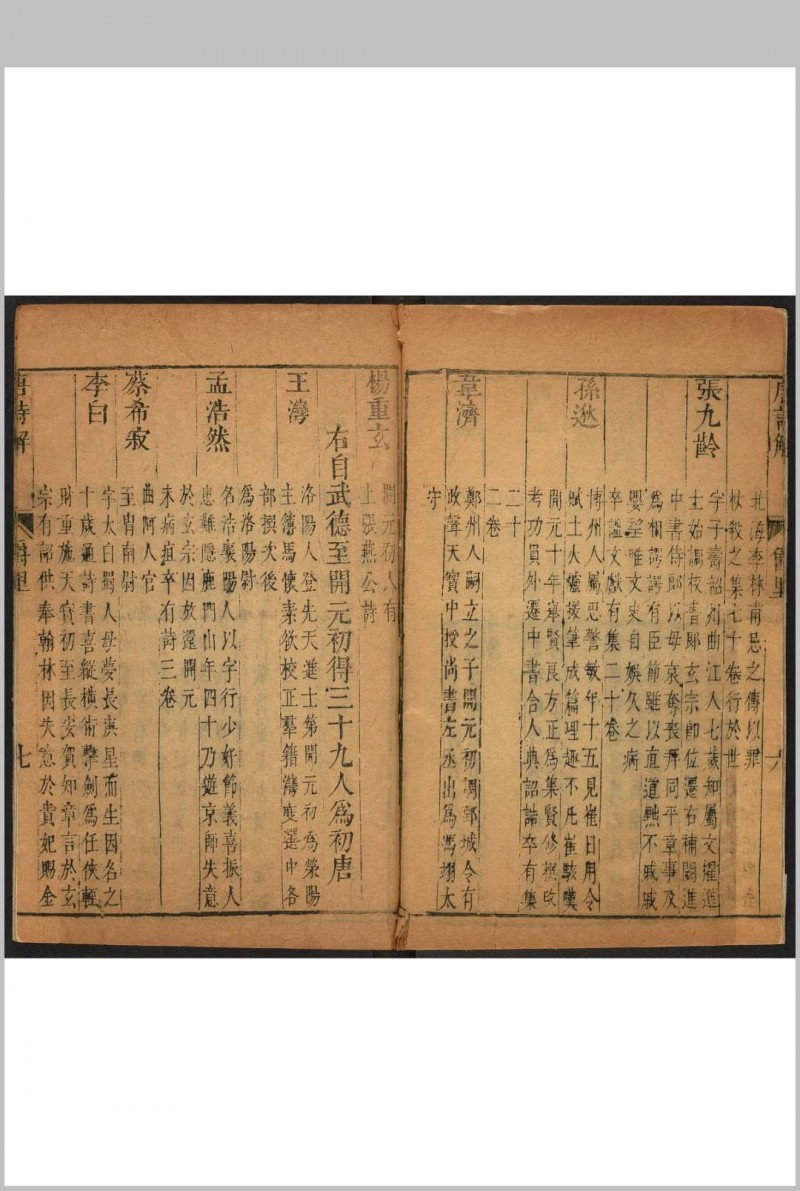 唐詩解
詩里
六
北海李林甫忌之傳以罪
杖殺之集七十卷行於世
張九齡
字子壽韶州曲江人七歲知屬文擢進
士始調校書郎玄宗即位遷右補闕進
中書侍郎以母哀奪喪拜同平章事及
為相諤諤有臣節雖以直道黜不戚戚
嬰望唯文史自娛久之病
卒諡文獻有集二十卷
孫逖
博州人屬思警敏年十五見崔日用令
賦土火爐援筆成篇理趣不凡崔駭嘆
開元十年舉賢良方正為集賢修撰改
考功員外遷中書舍人典詔誥卒有集
二十
二卷
韋濟
鄭州人嗣立之子開元初調鄄城令有
政聲天寶中授尚書左丞出為馮翊太
守
楊重玄
開元初人有
上張燕公詩
右自武德至開元初得三十九人為初唐
王灣
洛陽人登先天進士第開元初為滎陽
主簿馬懷素欲校正羣籍灣與選中各
部撰次後
為洛陽尉
孟浩然
名浩襄陽人以字行少好節義喜振人
患難隱鹿門山年四十乃遊京師失意
於玄宗因放還開元
末病疽卒有詩三卷
蔡希寂
曲阿人官
至胄南尉
李白
字太白蜀人母夢長庚星而生因名之
十歲通詩書喜縱橫術擊劍為任俠輕
財重施天寶初至長安賀知章言於玄
宗有詔供奉翰林因失意於貴妃賜金
唐詩解
詩里
七